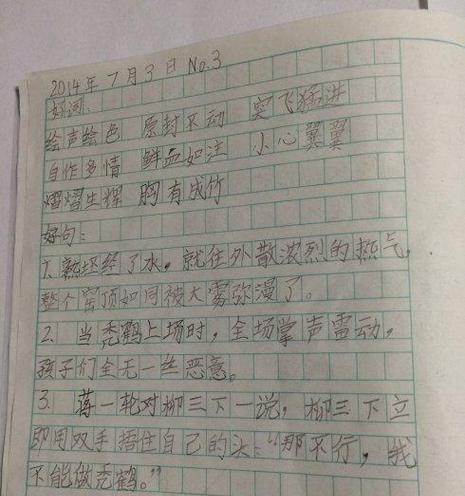 2014年7月3日 No.3
好词:
绘声绘色 原封不动 突飞猛进
自作多情 鲜血如注 小心翼翼
熠熠生辉 胸有成竹
好句:
1. 熟坯经了水,就往外散浓烈的热气,
整个窑顶如同被大雾弥漫了。
2. 当秃鹤上场时,全场掌声雷动,
孩子们全无一丝恶意。
3. 蒋一轮对柳三下一说,柳三下立
即用双手捂住自己的头:“那不行,我
不能做秃鹤。”